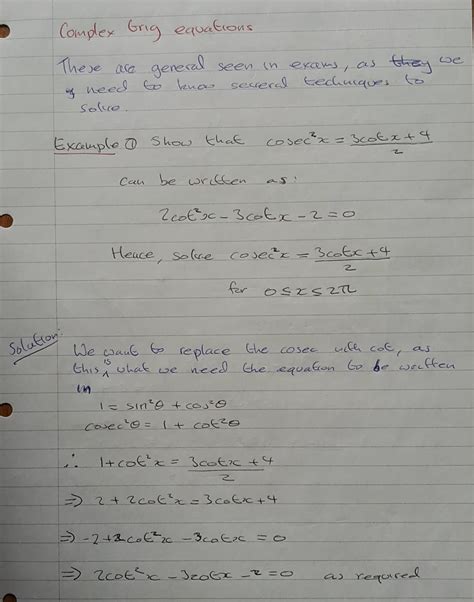 Complex trig equations
These are general seen in exams, as they we
need to know several techniques to
solve.
Example ① Show that cosec²x = 3cotx + 4
2
can be written as:
2cot²x - 3cotx - 2 = 0
Hence, solve cosec²x = 3cotx + 4
2
for 0 ≤ x ≤ 2π
Solution:
We want to replace the cosec with cot, as
this is what we need the equation to be written
in
1 = sin²θ + cos²θ
cosec²θ = 1 + cot²θ
∴ 1 + cot²x = 3cotx + 4
2
⇒ 2 + 2cot²x = 3cotx + 4
⇒ -2 + 2cot²x - 3cotx = 0
⇒ 2cot²x - 3cotx - 2 = 0 as required